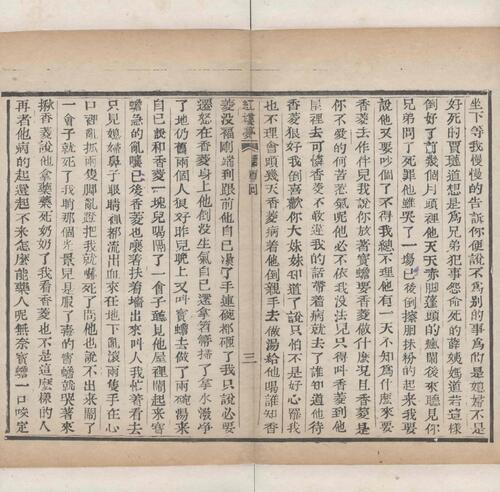 坐下等我慢慢的告訴你便說不為別的事為的是媳婦不是
好死的賈璉道想是為兄弟犯事怨命死的薛姨媽道若這樣
倒好了前幾個月頭裡他天天赤脚蓬頭的瘋鬧後來聽見你
兄弟問了死罪他雖哭了一場已後倒擦胭抹粉的起來我要
說他又要吵個了不得我總不理他有一天不知為什麼來要
香菱去作伴兒我說你放著寶蟾要香菱做什麼況且香菱是
你不愛的何苦惹氣呢他必不依我沒法兒只得叫香菱到他
屋裡去可憐香菱不敢違我的話帶着病就去了誰知道他待
香菱狠好我倒喜歡你大妹妹知道了說只怕不是好心罷我
也不理會頭幾天香菱病着他倒親手去做湯給他喝誰知香
紅樓夢 回 三
菱沒福剛端到跟前他自己燙了手連碗都砸了我只說必要
遷怒在香菱身上他倒沒生氣自己還拿笤帚掃了拿水潑淨
了地仍舊兩個人狠好昨兒晚上又叫寶蟾去做了兩碗湯來
自己說和香菱一塊兒喝隔了一會子聽見他屋裡鬧起來寶
蟾急的亂嚷已後香菱也嚷着扶着墻出來叫人我忙着看去
只見媳婦鼻子眼睛裡都流出血來在地下亂滾兩隻手在心
口裡亂抓兩隻脚亂蹬把我就嚇死了問他也說不出來鬧了
一會子就死了我瞧那個光景兒是服了毒的寶蟾就哭著來
揪香菱說他拿藥藥死奶奶了我看香菱也不是這麼樣的人
再者他病的起還起不來怎麼能藥人呢無奈寶蟾一口咬定